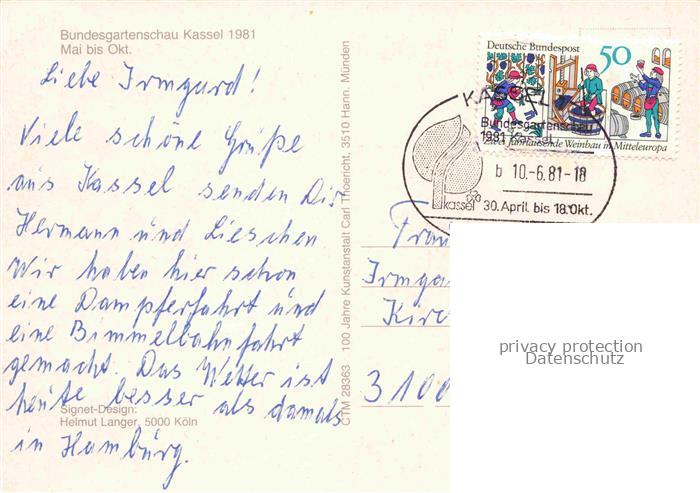 Bundesgartenschau Kassel 1981
Mai bis Okt.
Liebe Irmgard!
Viele schöne Grüße
aus Kassel senden Dir
Hermann und Lieschen.
Wir haben hier schon
eine Dampferfahrt und
eine Bimmelbahnfahrt
gemacht. Das Wetter ist
heute besser als damals
in Hamburg.
Signet-Design:
Helmut Langer, 5000 Köln
CTM 28363 100 Jahre Kunstanstalt Carl Thoericht, 3510 Hann. Münden
Deutsche Bundespost 50
Zwei Jahrtausende Weinbau in Mitteleuropa
KASSEL
Bundesgartenschau
1981 Kassel
b 10.-6.81-18
kassel 30. April bis 18. Okt.
Frau
Irmga
Kirc
3100
privacy protection
Datenschutz